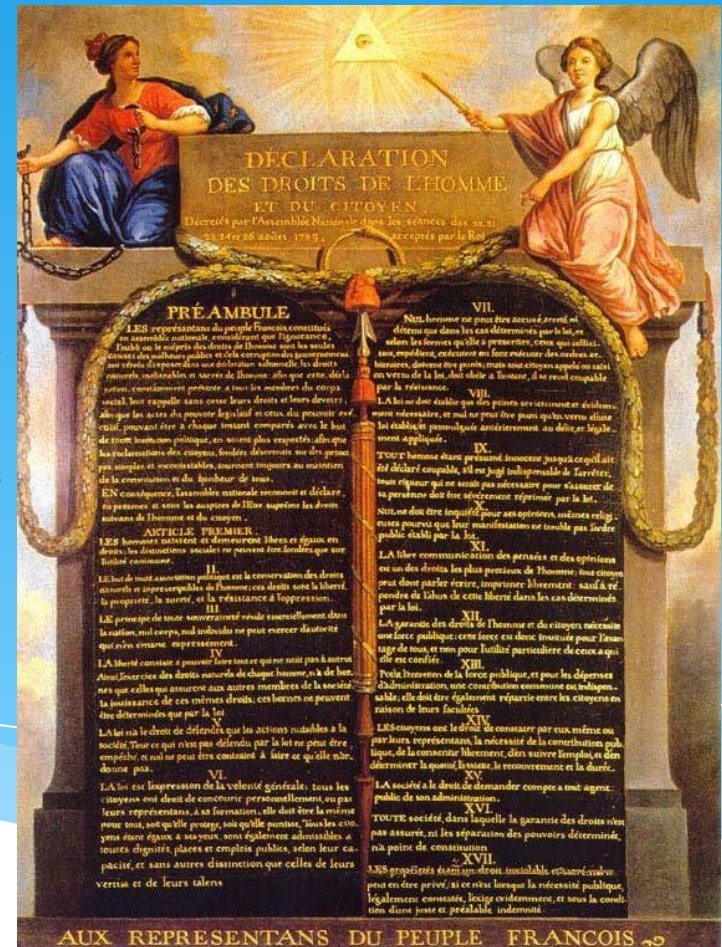 DÉCLARATION
DES DROITS DE L'HOMME
ET DU CITOYEN
Décretés par l'Assemblée Nationale dans les séances des 20, 21
23, 24 et 26 aoûst 1789, acceptés par le Roi
PRÉAMBULE
LES représentans du peuple Francois, constitués
en assemblée nationale, considérant que l'ignorance,
l'oubli ou le mépris des droits de l'homme sont les seules
causes des malheurs publics et de la corruption des gouvernemens
ont résolu d'exposer dans une déclaration solemnelle, les droits
naturels, inaliénables et sacrés de l'homme; afin que cette décla
ration, constamment présente a tous les membres du corps
social, leur rappelle sans cesse leurs droits et leurs devoirs;
afin que les actes du pouvoir législatif et ceux du pouvoir exé
cutif, pouvant être à chaque instant comparés avec le but
de toute institution politique, en soient plus respectés; afin que
les reclamations des citoyens, fondées désormais sur des princi
pes simples et incontestables, tournent toujours au maintien
de la constitution et du bonheur de tous.
EN conséquence, l'assemblée nationale reconnoit et déclare,
en presence et sous les auspices de l'Etre suprême les droits
suivans de l'homme et du citoyen.
ARTICLE PREMIER.
LES hommes naissent et demeurent libres et égaux en
droits; les distinctions sociales ne peuvent être fondées que sur
l'utilité commune.
II.
LE but de toute association politique est la conservation des droits
naturels et imprescriptibles de l'homme; ces droits sont la liberté,
la propriété, la sureté, et la résistance à l'oppression.
III.
LE principe de toute souveraineté réside essentiellement dans
la nation, nul corps, nul individu ne peut exercer d'autorité
qui n'en émane expressement.
IV.
LA liberté consiste a pouvoir faire tout ce qui ne nuit pas à autrui
Ainsi, l'exercice des droits naturels de chaque homme, n'a de bor
nes que celles qui assurent aux autres membres de la société
la jouissance de ces mêmes droits; ces bornes ne peuvent
être déterminées que par la loi
V.
LA loi n'a le droit de défendre que les actions nuisibles a la
société. Tout ce qui n'est pas défendu par la loi ne peut être
empêché, et nul ne peut être contraint à faire ce qu'elle n'or
donne pas.
VI.
LA loi est l'expression de la volonté générale; tous les
citoyens ont droit de concourir personnellement, ou par
leurs représentans, à sa formation; elle doit être la même
pour tous, soit qu'elle protege, soit qu'elle punisse. Tous les cito
yens étant égaux a ses yeux, sont également admissibles a
toutes dignités, places et emplois publics, selon leur ca
pacité, et sans autres distinction que celles de leurs
vertus et de leurs talens
VII.
NUL homme ne peut être accusé, arreté, ni
détenu que dans les cas déterminés par la loi, et
selon les formes qu'elle a prescrites, ceux qui sollici
tent, expédient, exécutent ou font exécuter des ordres ar
bitraires, doivent être punis; mais tout citoyen appelé ou saisi
en vertu de la loi, doit obéir a l'instant, il se rend coupable
par la résistance.
VIII.
LA loi ne doit établir que des peines strictement et évidem
ment nécessaire, et nul ne peut être puni qu'en vertu d'une
loi établie et promulguée antérierement au délit, et légale
ment appliquée.
IX.
TOUT homme étant présumé innocent jusqu'a ce qu'il ait
été déclaré coupable, s'il est jugé indispensable de l'arrêter,
toute rigueur qui ne serait pas nécessaire pour s'assurer de
sa personne doit être sévèrement réprimée par la loi.
X.
NUL ne doit être inquiété pour ses opinions, mêmes religi
euses pourvu que leur manifestation ne trouble pas l'ordre
public établi par la loi.
XI.
LA libre communication des pensées et des opinions
est un des droits les plus precieux de l'homme; tout citoyen
peut dont parler écrire, imprimer librement: sauf à ré
pondre de l'abus de cette liberté dans les cas déterminés
par la loi.
XII.
LA garantie des droits de l'homme et du citoyen nécessite
une force publique; cette force est donc instituée pour l'avan
tage de tous, et non pour l'utilité particuliere de ceux a qui
elle est confiée.
XIII.
Pour l'entretien de la force publique, et pour les dépenses
d'administration, une contribution commune est indispen
sable; elle doit être également répartie entre les citoyens en
raison de leurs facultées
XIV.
LES citoyens ont le droit de constater par eux même ou
par leurs représentans, la nécessité de la contribution pub
lique, de la consentir librement, d'en suivre l'emploi, et d'en
déterminer la quotité, l'assiette, le recouvrement et la durée.
XV.
LA société a le droit de demander compte a tout agent
public de son administration.
XVI.
TOUTE société, dans laquelle la garantie des droits n'est
pas assurée, ni les séparation des pouvoirs déterminée,
n'a point de constitution
XVII.
LES propriétés étant un droit inviolable et sacré, nul ne
peut en être privé, si ce n'est lorsque la nécessité publique,
légalement constatée, l'exige evidemment, et sous la condi
tion d'une juste et préalable indemnité.
AUX REPRESENTANS DU PEUPLE FRANCOIS